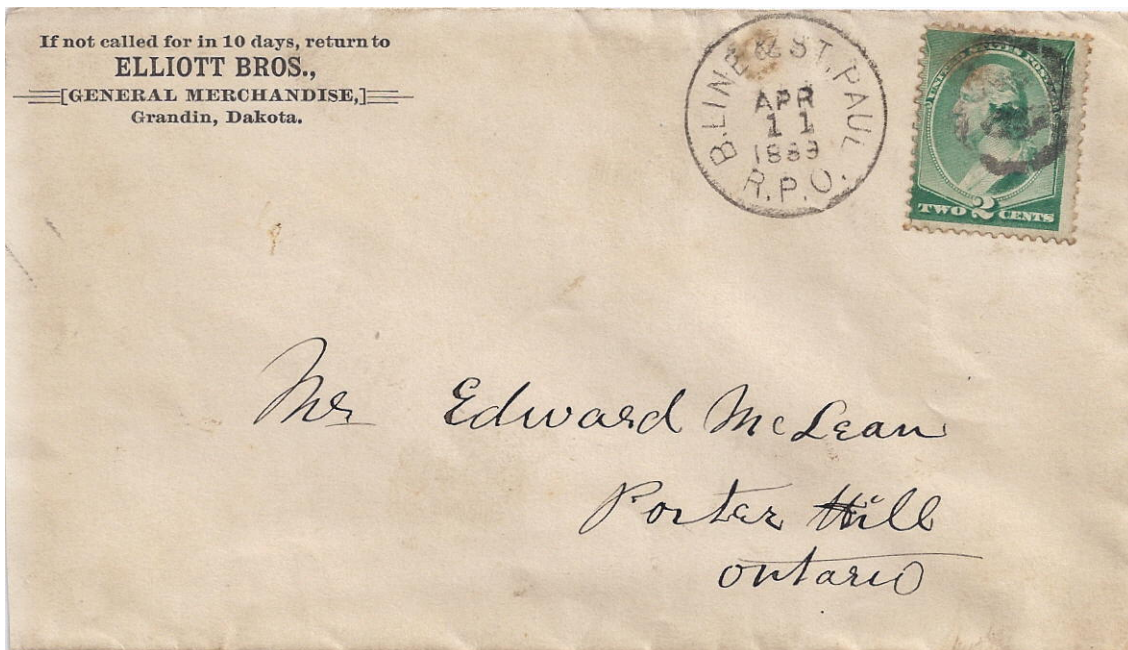 If not called for in 10 days, return to
ELLIOTT BROS.,
[GENERAL MERCHANDISE,]
Grandin, Dakota.
B. LINE & ST. PAUL
APR
11
1889
R.P.O.
UNITED STATES POSTAGE
TWO 2 CENTS
Mr Edward McLean
Porter Hill
Ontario